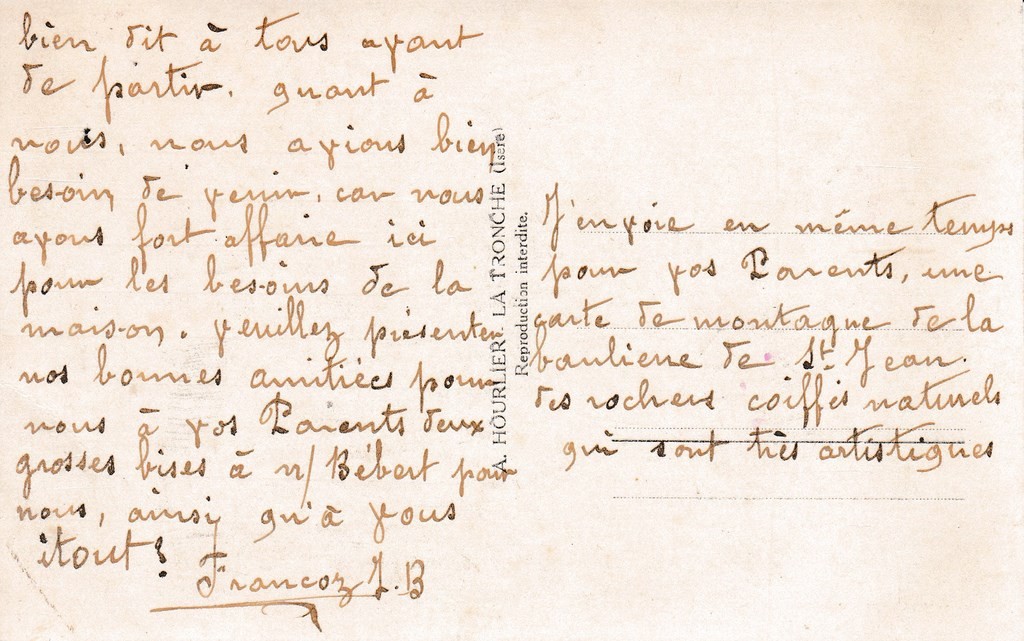 bien dit à tous ayant
de partir. quant à
nous, nous avions bien
besoin, de venir, car nous
avons fort affaire ici
pour les besoins de la
maison. veuillez présenter
nos bonnes amitiées pour
nous à vos Parents deux
grosses bises à n/ Bébert pour
nous, ainsi qu'à vous
itout !
Francoz J.B
A. HOURLIER, LA TRONCHE (Isère)
Reproduction interdite.
J'envoie en même temps
pour vos Parents, une
carte de montagne de la
banliene de St. Jean.
des rochers coiffés naturels
qui sont très artistiques